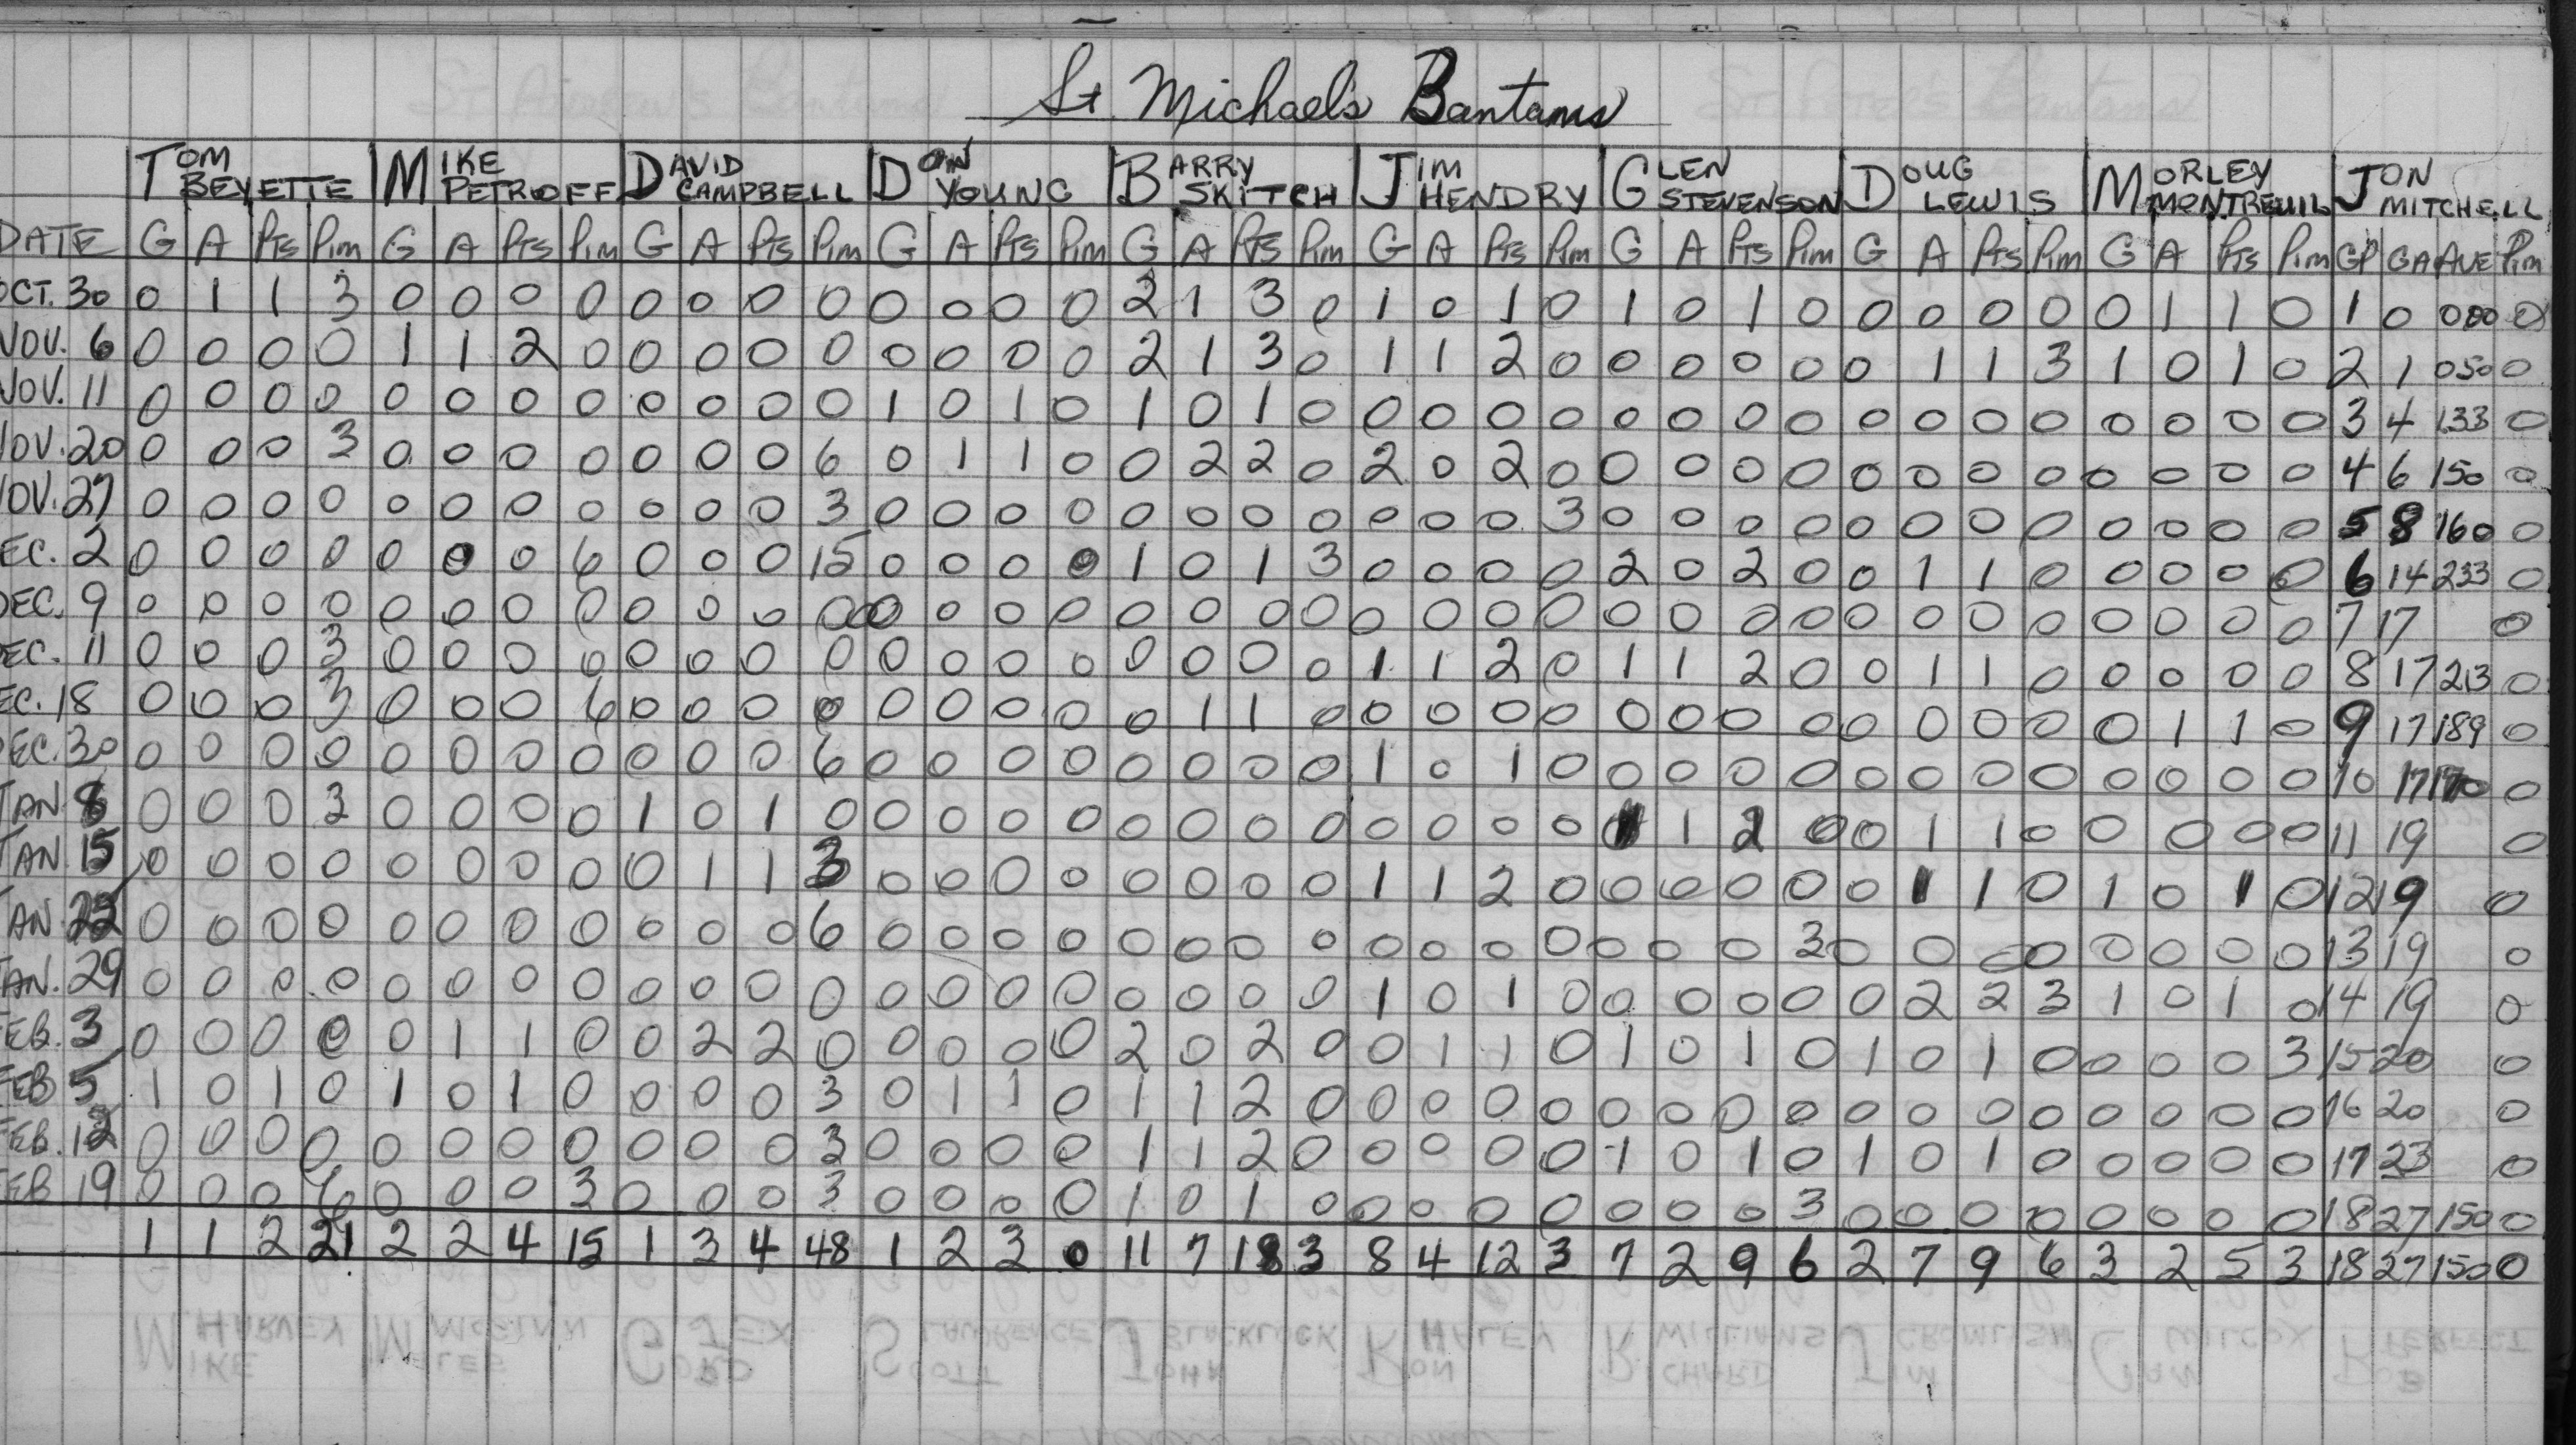 St. Michael's Bantams
TOM BEYETTE MIKE PETROFF DAVID CAMPBELL DON YOUNG BARRY SKITCH JIM HENDRY GLEN STEVENSON DOUG LEWIS MORLEY MONTREUIL JON MITCHELL
DATE G A Pts Pim G A Pts Pim G A Pts Pim G A Pts Pim G A Pts Pim G A Pts Pim G A Pts Pim G A Pts Pim G A Pts Pim GP GA AVE Pim
OCT. 30 0 1 1 3 0 0 0 0 0 0 0 0 0 0 0 0 2 1 3 0 1 0 1 0 1 0 1 0 0 0 0 0 0 1 1 0 1 0 000 0
NOV. 6 0 0 0 0 1 1 2 0 0 0 0 0 0 0 0 0 2 1 3 0 1 1 2 0 0 0 0 0 0 1 1 3 1 0 1 0 2 1 050 0
NOV. 11 0 0 0 0 0 0 0 0 0 0 0 0 1 0 1 0 1 0 1 0 0 0 0 0 0 0 0 0 0 0 0 0 0 0 0 0 3 4 1.33 0
NOV. 20 0 0 0 3 0 0 0 0 0 0 0 6 0 1 1 0 0 2 2 0 2 0 2 0 0 0 0 0 0 0 0 0 0 0 0 0 4 6 150 0
NOV. 27 0 0 0 0 0 0 0 0 0 0 0 3 0 0 0 0 0 0 0 0 0 0 0 3 0 0 0 0 0 0 0 0 0 0 0 0 5 8 160 0
EC. 2 0 0 0 0 0 0 0 6 0 0 0 15 0 0 0 0 1 0 1 3 0 0 0 0 2 0 2 0 0 1 1 0 0 0 0 0 6 14 233 0
DEC. 9 0 0 0 0 0 0 0 0 0 0 0 0 0 0 0 0 0 0 0 0 0 0 0 0 0 0 0 0 0 0 0 0 0 0 0 0 7 17 0
EC. 11 0 0 0 3 0 0 0 0 0 0 0 0 0 0 0 0 0 0 0 0 1 1 2 0 1 1 2 0 0 1 1 0 0 0 0 0 8 17 213 0
EC. 18 0 0 0 3 0 0 0 6 0 0 0 0 0 0 0 0 0 1 1 0 0 0 0 0 0 0 0 0 0 0 0 0 0 1 1 0 9 17 189 0
DEC. 30 0 0 0 0 0 0 0 0 0 0 0 6 0 0 0 0 0 0 0 0 1 0 1 0 0 0 0 0 0 0 0 0 0 0 0 0 10 17 170 0
JAN 8 0 0 0 3 0 0 0 0 1 0 1 0 0 0 0 0 0 0 0 0 0 0 0 0 1 1 2 0 0 1 1 0 0 0 0 0 11 19 0
JAN 15 0 0 0 0 0 0 0 0 0 1 1 3 0 0 0 0 0 0 0 0 1 1 2 0 0 0 0 0 0 1 1 0 1 0 1 0 12 19 0
JAN 22 0 0 0 0 0 0 0 0 0 0 0 6 0 0 0 0 0 0 0 0 0 0 0 0 0 0 0 3 0 0 0 0 0 0 0 0 13 19 0
JAN. 29 0 0 0 0 0 0 0 0 0 0 0 0 0 0 0 0 0 0 0 0 1 0 1 0 0 0 0 0 0 2 2 3 1 0 1 0 14 19 0
FEB. 3 0 0 0 0 0 1 1 0 0 2 2 0 0 0 0 0 2 0 2 0 0 1 1 0 1 0 1 0 1 0 1 0 0 0 0 3 15 20 0
FEB 5 1 0 1 0 1 0 1 0 0 0 0 3 0 1 1 0 1 1 2 0 0 0 0 0 0 0 0 0 0 0 0 0 0 0 0 0 16 20 0
FEB. 12 0 0 0 0 0 0 0 0 0 0 0 3 0 0 0 0 1 1 2 0 0 0 0 0 1 0 1 0 1 0 1 0 0 0 0 0 17 23 0
FEB 19 0 0 0 6 0 0 0 3 0 0 0 3 0 0 0 0 1 0 1 0 0 0 0 0 0 0 0 3 0 0 0 0 0 0 0 0 18 27 150 0
1 1 2 21 2 2 4 15 1 3 4 48 1 2 3 0 11 7 18 3 8 4 12 3 7 2 9 6 2 7 9 6 3 2 5 3 18 27 150 0